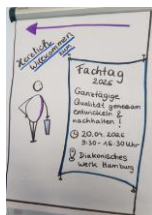 Herzlich
Willkommen
zum
Fachtag
2026
Ganztägige
Qualität gemeinsam
entwickeln &
nachhalten!
20.04.2026
9:30-16:30 Uhr
Diakonisches
Werk Hamburg